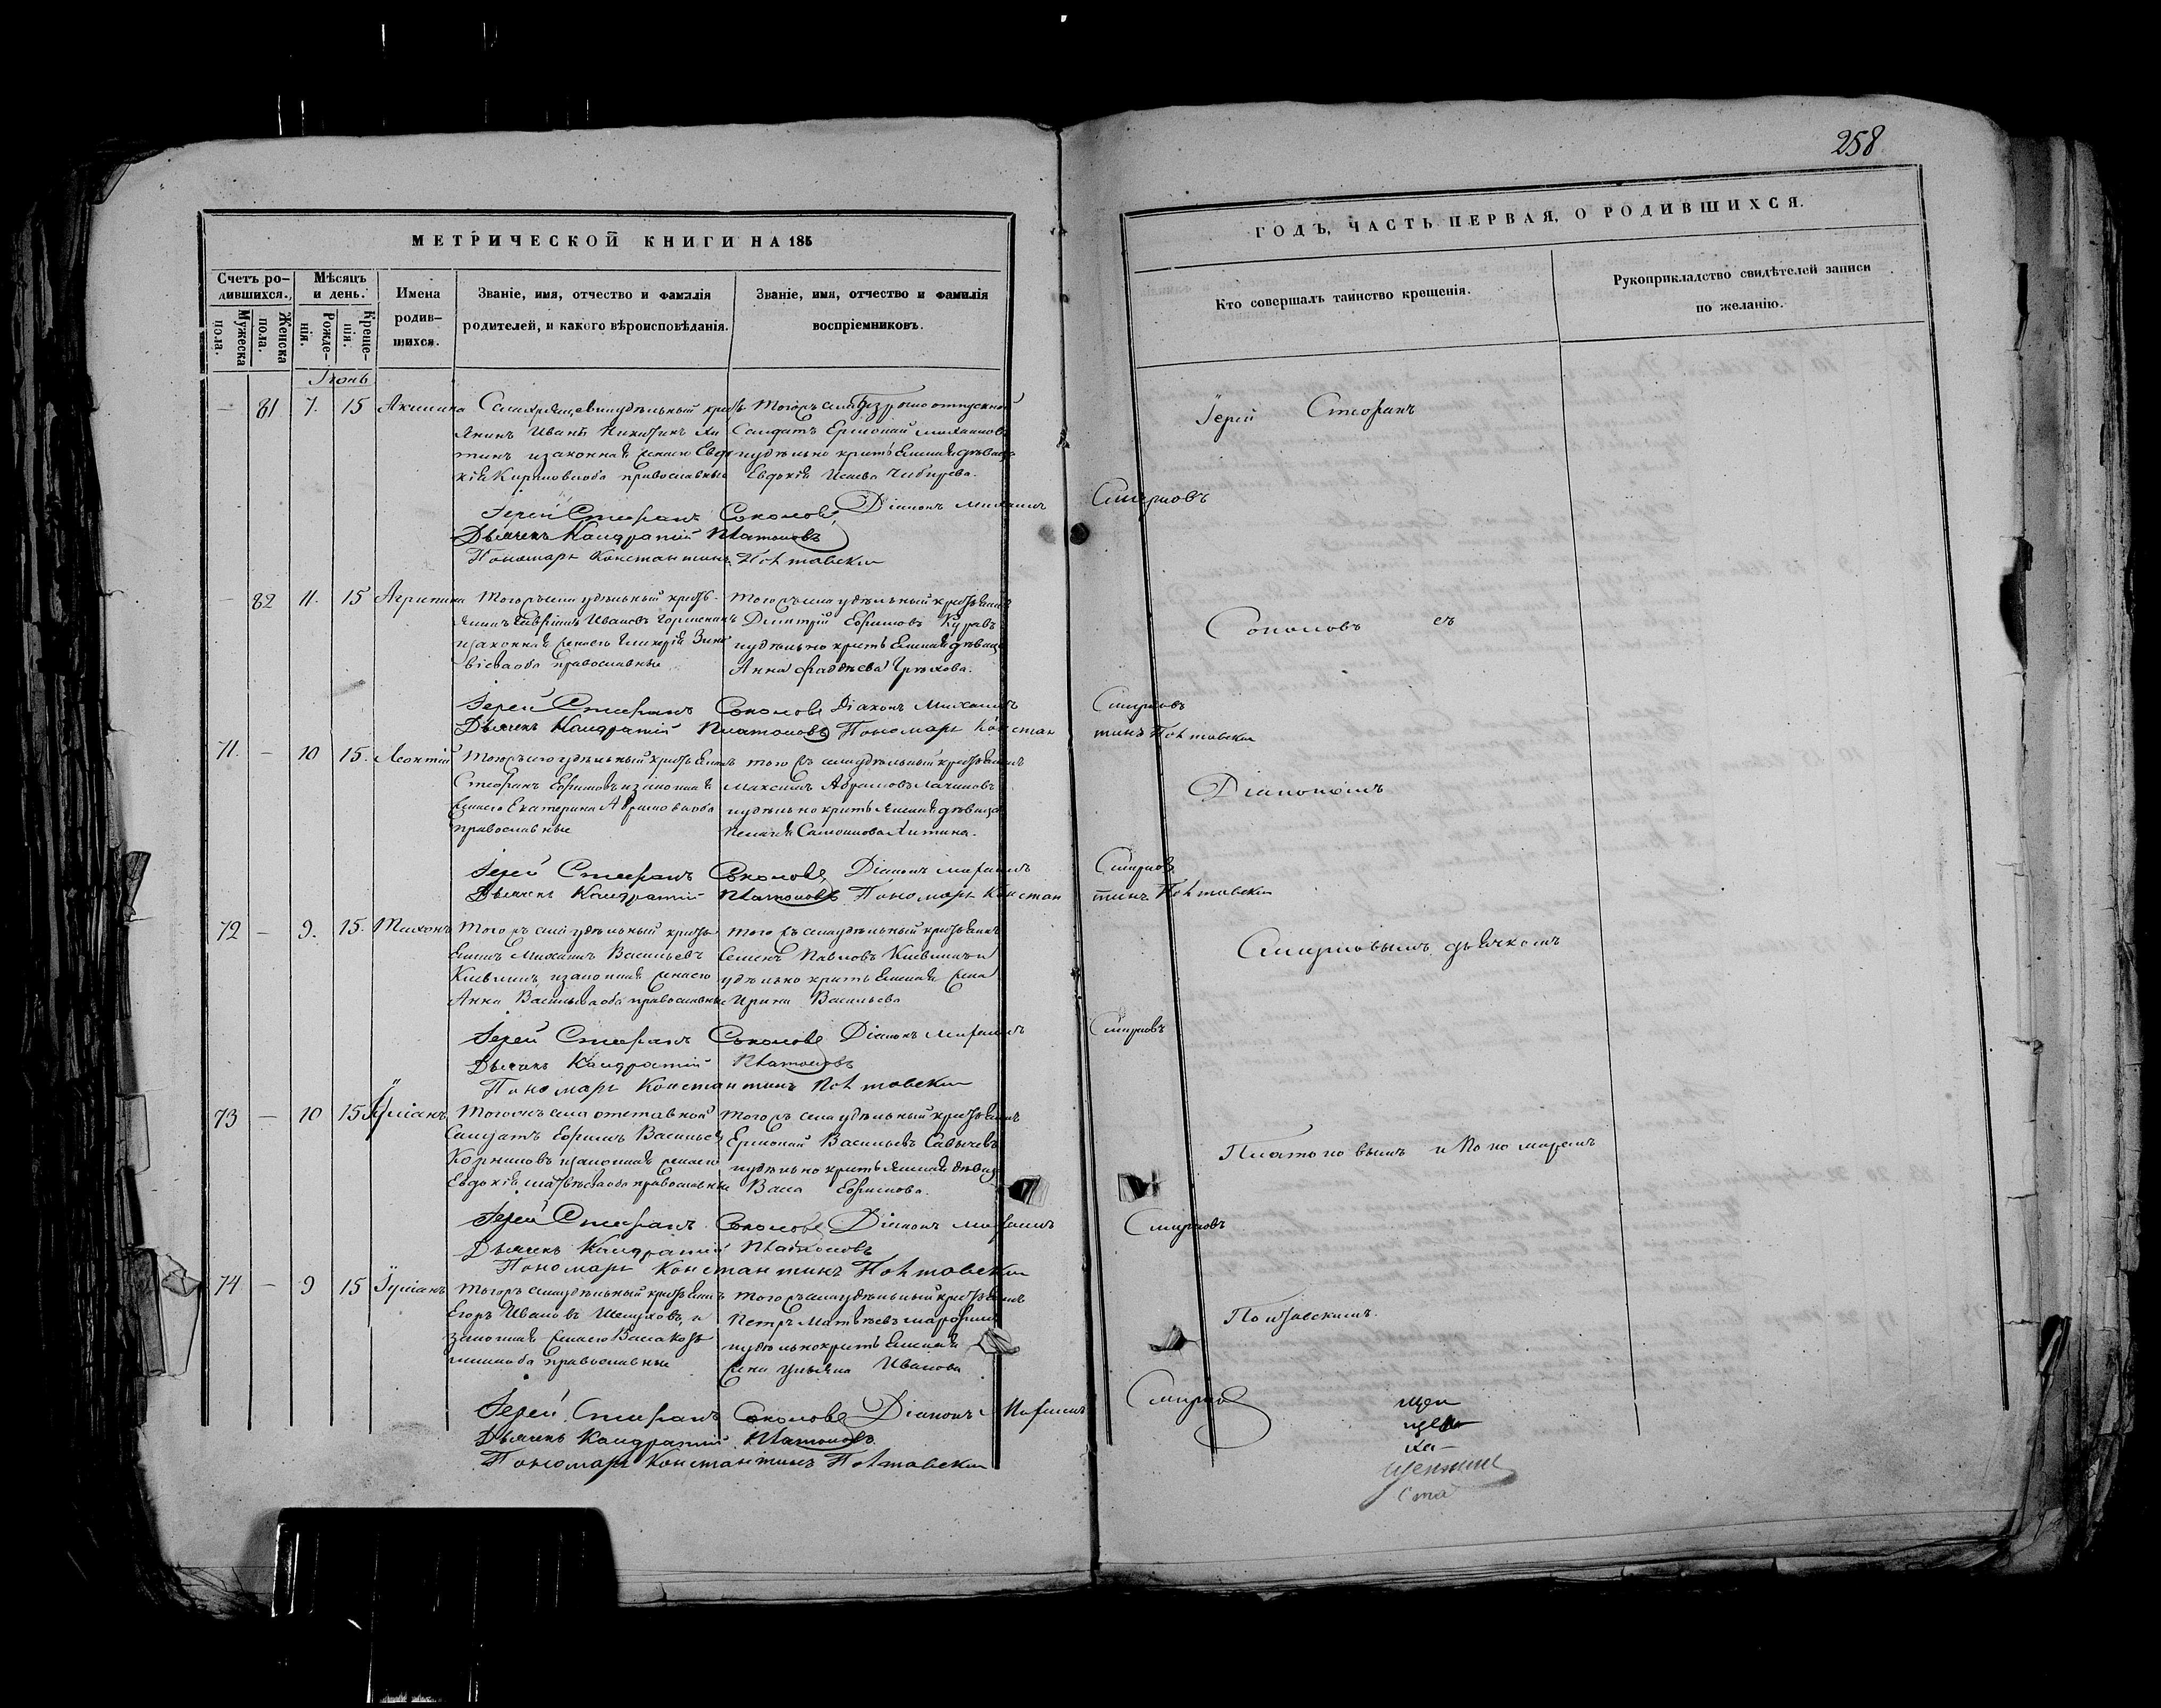 258
МЕТРИЧЕСКОЙ КНИГИ НА 185
ГОДЪ, ЧАСТЬ ПЕРВАЯ, О РОДИВШИХСЯ.
Счетъ ро-
дившихся.
Мужеска
пола.
Женска
пола.
Мѣсяцъ
и день.
Рожде-
нія.
Креще-
нія.
Имена
родив-
шихся.
Званіе, имя, отчество и фамилія
родителей, и какого вѣроисповѣданія.
Званіе, имя, отчество и фамилія
воспріемниковъ.
Кто совершалъ таинство крещенія.
Рукоприкладство свидѣтелей записи
по желанію.
Іюнь
— 81 7. 15 Акилина
удѣльный кресть
янинъ Иванъ Никитинъ Хи
тинъ изаконная жена его Евдо
кія православные
Солдатъ Ермолай Михаиловъ
иудѣльно крестьянская дѣвица
Евдокія Чибирева.
Іерей Стефанъ
Іерей Стефанъ Соколовъ Діаконъ Михаилъ Смирновъ
Дьячекъ Кандратій Платоновъ
Пономарь Константинъ Полтавскій
— 82 11. 15 Агрипина Тогожъ села удѣльный кресть-
янинъ Ивановъ
изаконная жена его
оба православные
Тогожъ села удѣльный крестьянинъ
Димитрій Ефимовъ
иудѣльно крестьянская дѣвица
Анна Фаддѣева Грѣхова.
Соколовъ съ
Іерей Стефанъ Соколовъ Діаконъ Михаилъ Смирновъ
Дьячекъ Кандратій Платоновъ Пономарь Констан тинъ Полтавскій
71. — 10 15. Леонтій Тогожъ села удѣльный крестьянинъ
Стефанъ Ефимовъ изаконная
жена его Екатерина оба
православные
того жъ села удѣльный крестьянинъ
Максимъ Абрамовъ
иудѣльно крестьянская дѣвица
Пелагія Хитина.
Діакономъ
Іерей Стефанъ Соколовъ Діаконъ Михаилъ Смирновъ
Дьячекъ Кандратій Платоновъ Пономарь Констан тинъ Полтавскій
72 — 9. 15. Тихонъ Того жъ села удѣльный кресть
янинъ Михаилъ Васильевъ
изаконная жена его
Анна Васильева оба православные
Того жъ села удѣльный крестьянинъ
Семенъ Павловъ
удѣльно крестьянская жена
Ирина Васильева
Смирновымъ дьячкомъ
Іерей Стефанъ Соколовъ Діаконъ Михаилъ Смирновъ
Дьячекъ Кандратій Платоновъ
Пономарь Константинъ Полтавскій
73 — 10 15 Іуліанъ Тогожъ села отставной
Солдатъ Ефимъ Васильевъ
Корниловъ изаконная жена его
Евдокія оба православные
Тогожъ села удѣльный крестьянинъ
Ермолай Васильевъ
иудѣльно крестьянская дѣвица
Васа Ефимова.
Платоновымъ и Пономаремъ
Іерей Стефанъ Соколовъ Діаконъ Михаилъ Смирновъ
Дьячекъ Кандратій Платоновъ
Пономарь Константинъ Полтавскій
74 — 9 15 Іуліанъ Тогожъ села удѣльный крестьянинъ
Егоръ Ивановъ и
законная жена его Васа
оба православные
Тогожъ села удѣльный крестьянинъ
Петръ Матвѣевъ
иудѣльно крестьянская
жена Ульяна Иванова
Полтавскимъ.
Іерей Стефанъ Соколовъ Діаконъ Михаилъ Смирновъ
Дьячекъ Кандратій Платоновъ
Пономарь Константинъ Полтавскій